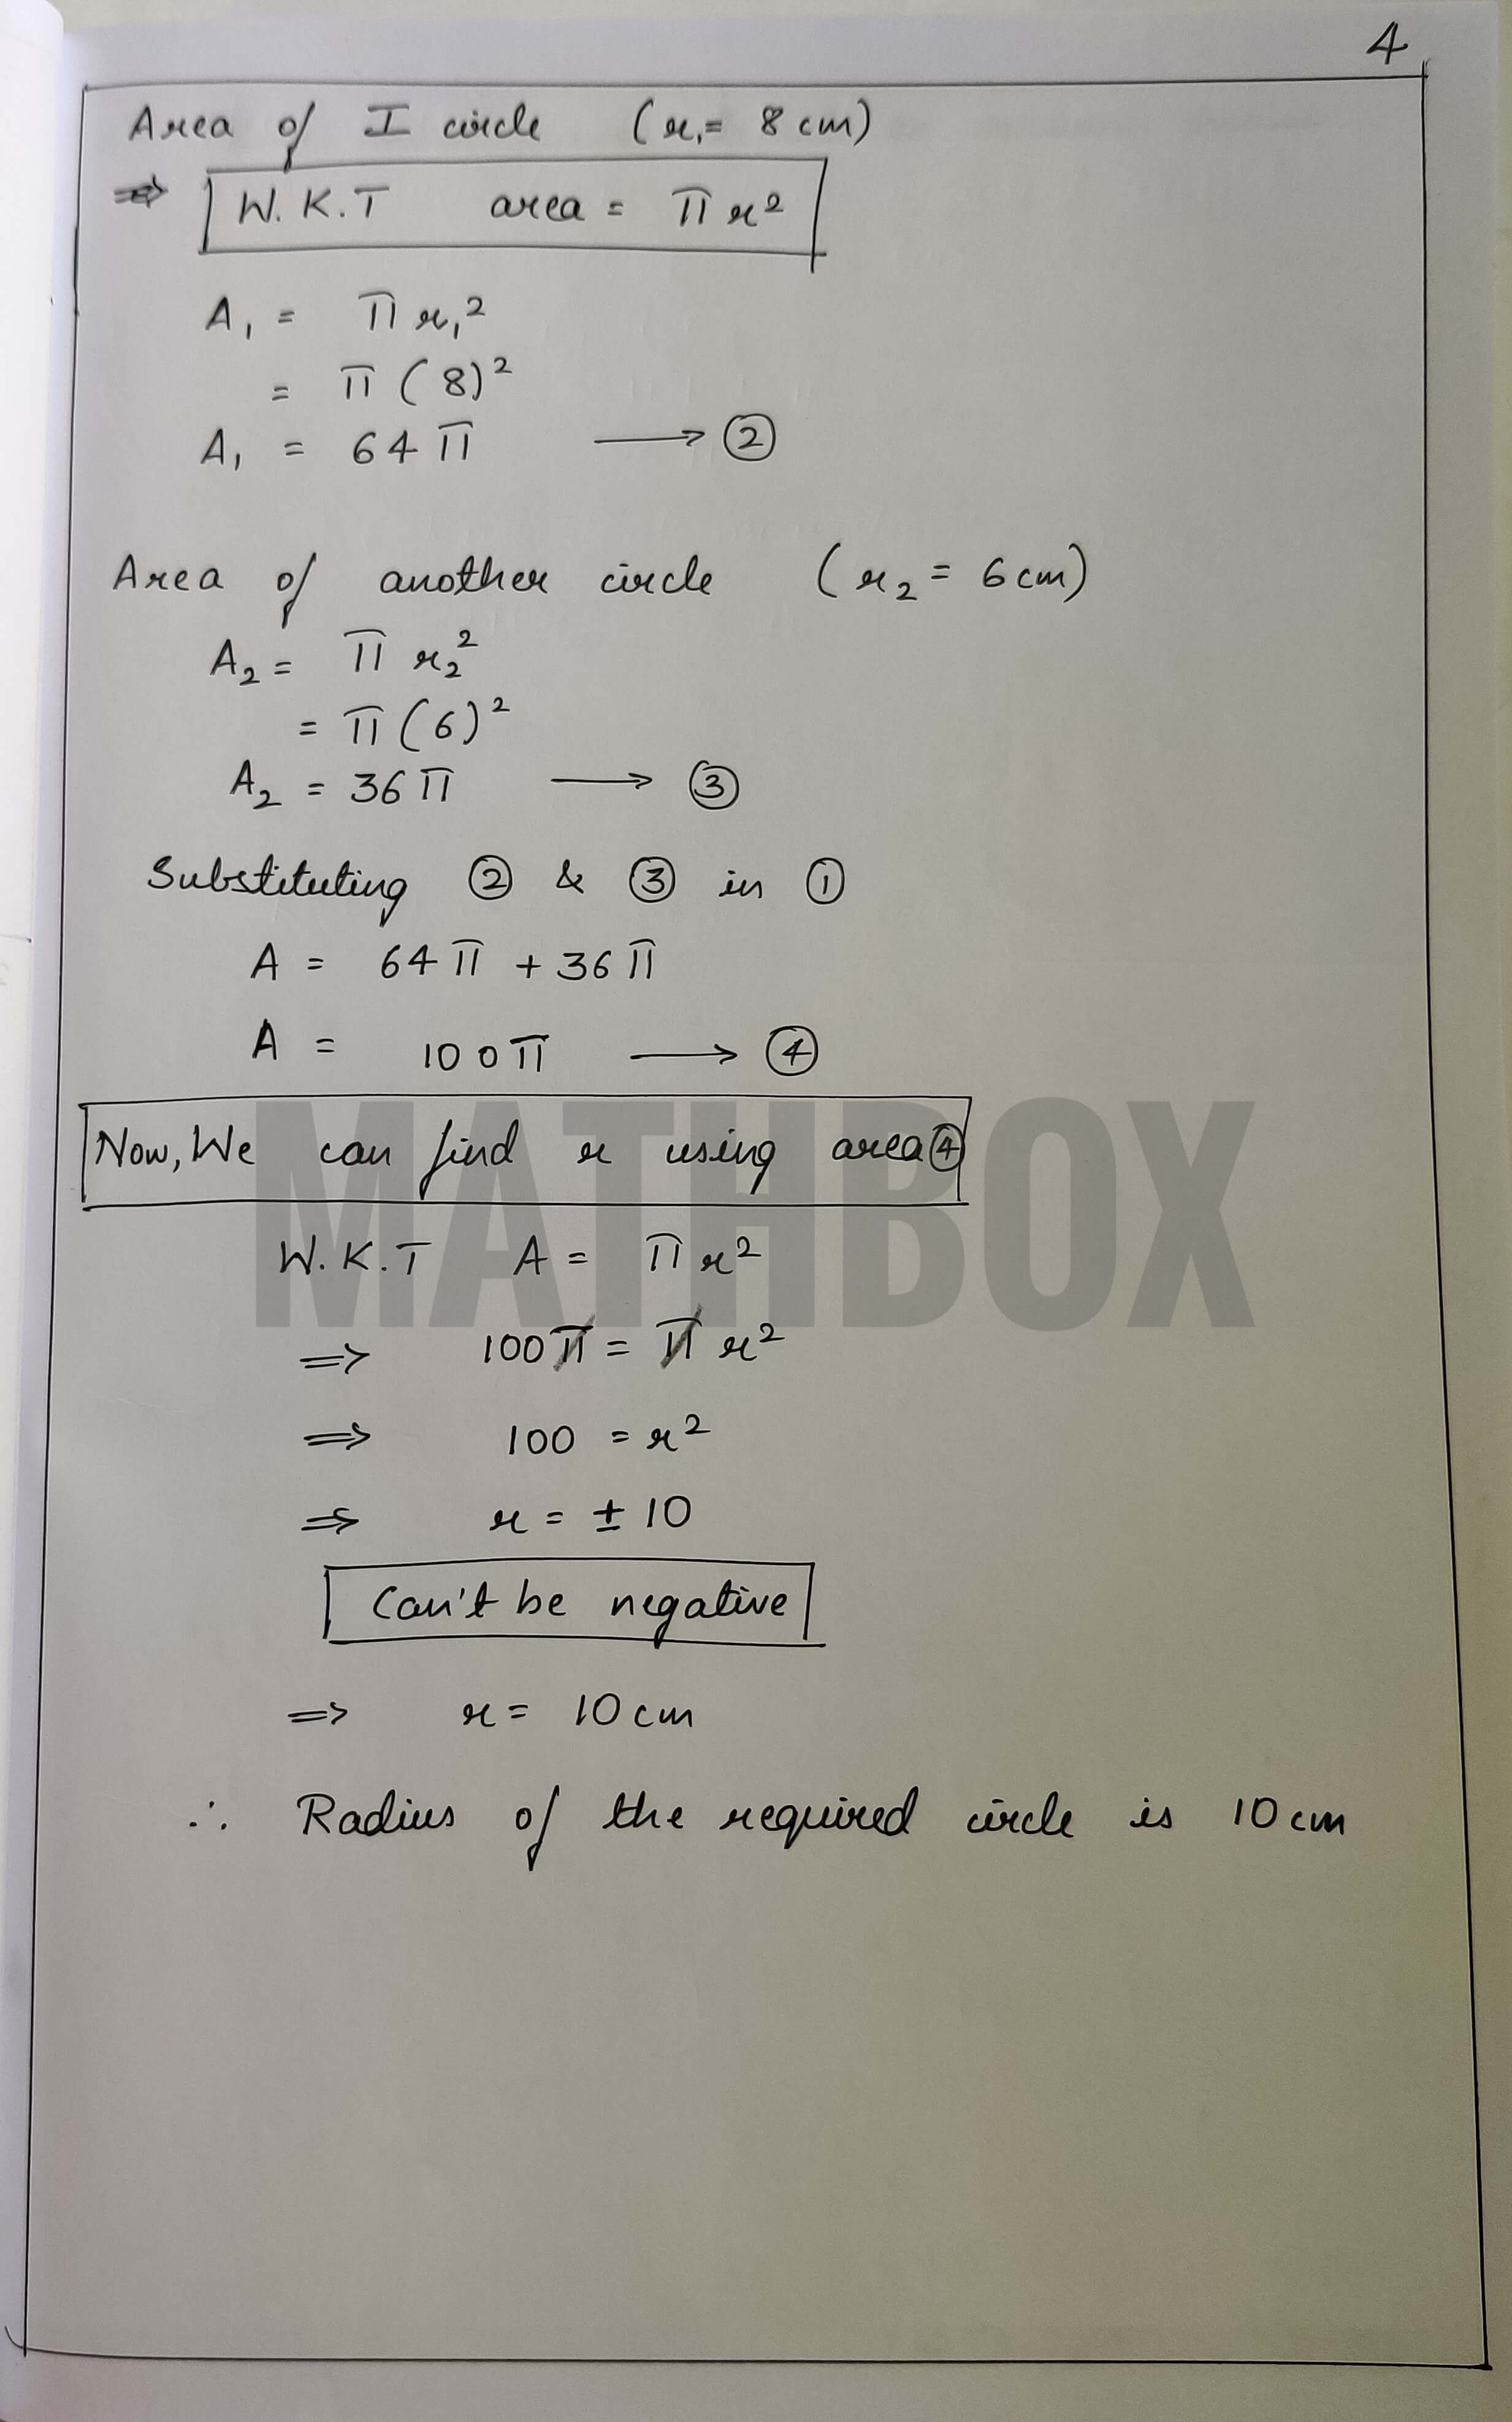 4
Area of I circle (r₁= 8 cm)
⇒ W.K.T area = πr²
A₁ = πr₁²
= π(8)²
A₁ = 64π ⟶ ②
Area of another circle (r₂ = 6cm)
A₂ = πr₂²
= π(6)²
A₂ = 36π ⟶ ③
Substituting ② & ③ in ①
A = 64π + 36π
A = 100π ⟶ ④
Now, We can find r using area④
MATHBOX
W.K.T A = πr²
⇒ 100π = πr²
⇒ 100 = r²
⇒ r = ± 10
Can't be negative
⇒ r = 10cm
∴ Radius of the required circle is 10cm